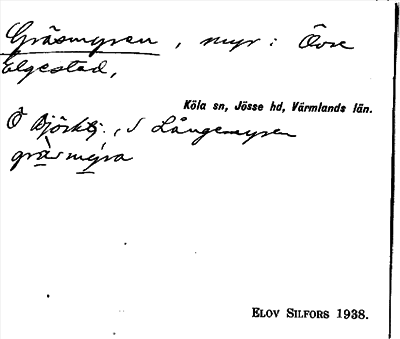 Gräsmyren, myr i Övre
Elgestad,
Köla sn, Jösse hd, Värmlands län.
Ö Björkbj., S Långemyren
gräsmýra
ELOV SILFORS 1938.